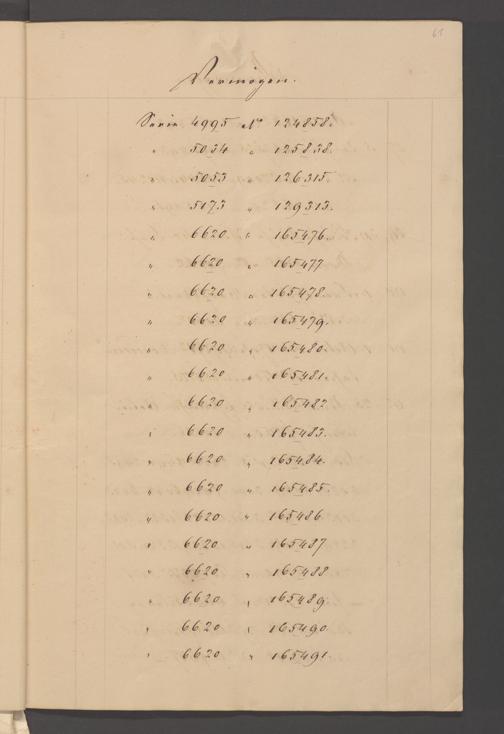 61
Vermögen.
Serie 4995 No 124858.
" 5034 " 125838.
" 5053 " 126315.
" 5173 " 129313.
" 6620 " 165476.
" 6620 " 165477
" 6620 " 165478.
" 6620 " 165479.
" 6620 " 165480.
" 6620 " 165481.
" 6620 " 165482
" 6620 " 165483.
" 6620 " 165484.
" 6620 " 165485.
" 6620 " 165486
" 6620 " 165487
" 6620 " 165488
" 6620 " 165489.
" 6620 " 165490.
" 6620 " 165491.